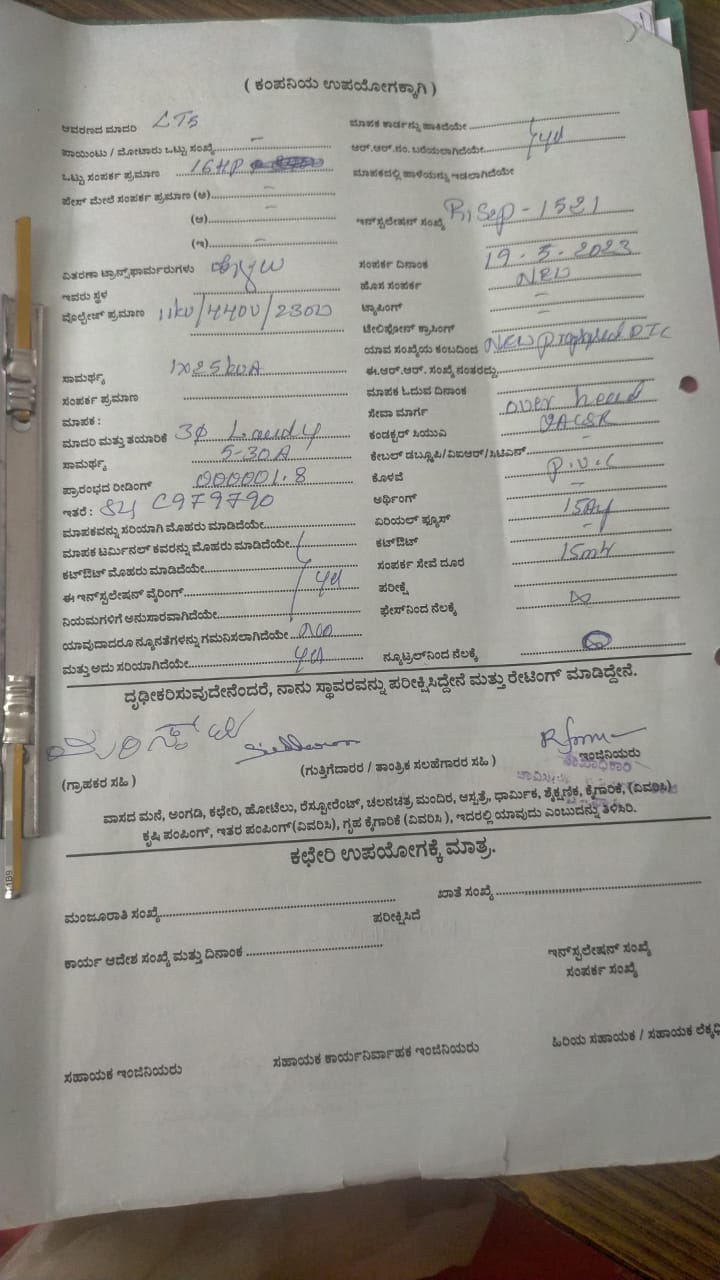 ( ಕಂಪನಿಯ ಉಪಯೋಗಕ್ಕಾಗಿ )
ಆವರಣದ ಮಾದರಿ LT5
ಪಾಯಿಂಟು / ಮೋಟಾರು ಒಟ್ಟು ಸಂಖ್ಯೆ -
ಒಟ್ಟು ಸಂಪರ್ಕ ಪ್ರಮಾಣ 16HP
ಫೇಸ್ ಮೇಲೆ ಸಂಪರ್ಕ ಪ್ರಮಾಣ (ಅ) -
(ಆ) -
(ಇ) -
ವಿತರಣಾ ಟ್ರಾನ್ಸ್‌ಫಾರ್ಮರುಗಳು
ಇವರು ಸ್ಥಳ
ವೋಲ್ಟೇಜ್ ಪ್ರಮಾಣ 11kv/440V/230V
ಸಾಮರ್ಥ್ಯ 1x25kVA
ಸಂಪರ್ಕ ಪ್ರಮಾಣ
ಮಾಪಕ :
ಮಾದರಿ ಮತ್ತು ತಯಾರಿಕೆ 3ϕ
ಸಾಮರ್ಥ್ಯ 5-30A
ಪ್ರಾರಂಭದ ರೀಡಿಂಗ್ 000001.8
ಇತರೆ : C979790
ಮಾಪಕವನ್ನು ಸರಿಯಾಗಿ ಮೊಹರು ಮಾಡಿದೆಯೇ
ಮಾಪಕ ಟರ್ಮಿನಲ್ ಕವರನ್ನು ಮೊಹರು ಮಾಡಿದೆಯೇ
ಕಟ್‌ಔಟ್ ಮೊಹರು ಮಾಡಿದೆಯೇ
ಈ ಇನ್‌ಸ್ಟಲೇಷನ್ ವೈರಿಂಗ್
ನಿಯಮಗಳಿಗೆ ಅನುಸಾರವಾಗಿದೆಯೇ
ಯಾವುದಾದರೂ ನ್ಯೂನತೆಗಳನ್ನು ಗಮನಿಸಲಾಗಿದೆಯೇ
ಮತ್ತು ಅದು ಸರಿಯಾಗಿದೆಯೇ
ಮಾಪಕ ಕಾರ್ಡನ್ನು ಹಾಕಿದೆಯೇ
ಆರ್.ಆರ್.ನಂ. ಬರೆಯಲಾಗಿದೆಯೇ
ಮಾಪಕದಲ್ಲಿ ಹಾಳೆಯನ್ನು ಇಡಲಾಗಿದೆಯೇ
ಇನ್‌ಸ್ಟಲೇಷನ್ ಸಂಖ್ಯೆ - 1521
ಸಂಪರ್ಕ ದಿನಾಂಕ 19-5-2023
ಹೊಸ ಸಂಪರ್ಕ NEW
ಟ್ಯಾಪಿಂಗ್ -
ಟೇಲಿಫೋನ್ ಕ್ರಾಸಿಂಗ್ -
ಯಾವ ಸಂಖ್ಯೆಯ ಕಂಬದಿಂದ NEW
ಈ.ಆರ್.ಆರ್. ಸಂಖ್ಯೆ ನಂತರದ್ದು
ಮಾಪಕ ಓದುವ ದಿನಾಂಕ
ಸೇವಾ ಮಾರ್ಗ over head
ಕಂಡಕ್ಟರ್ ಸಿಯುಎ
ಕೇಬಲ್ ಡಬ್ಲೂಪಿ/ವಿಐಆರ್/ಸಿಟಿಎಸ್ -
ಕೊಳವೆ P.V.C
ಅರ್ಥಿಂಗ್ -
ಏರಿಯಲ್ ಫ್ಯೂಸ್
ಕಟ್‌ಔಟ್ -
ಸಂಪರ್ಕ ಸೇವೆ ದೂರ
ಪರೀಕ್ಷೆ
ಫೇಸ್‌ನಿಂದ ನೆಲಕ್ಕೆ
ನ್ಯೂಟ್ರಲ್‌ನಿಂದ ನೆಲಕ್ಕೆ
ದೃಢೀಕರಿಸುವುದೇನೆಂದರೆ, ನಾನು ಸ್ಥಾವರವನ್ನು ಪರೀಕ್ಷಿಸಿದ್ದೇನೆ ಮತ್ತು ರೇಟಿಂಗ್ ಮಾಡಿದ್ದೇನೆ.
(ಗ್ರಾಹಕರ ಸಹಿ ) (ಗುತ್ತಿಗೆದಾರರ / ತಾಂತ್ರಿಕ ಸಲಹೆಗಾರರ ಸಹಿ ) ಇಂಜಿನಿಯರು
ವಾಸದ ಮನೆ, ಅಂಗಡಿ, ಕಛೇರಿ, ಹೋಟೆಲು, ರೆಸ್ಟೋರೆಂಟ್, ಚಲನಚಿತ್ರ ಮಂದಿರ, ಆಸ್ಪತ್ರೆ, ಧಾರ್ಮಿಕ, ಶೈಕ್ಷಣಿಕ, ಕೈಗಾರಿಕೆ, (ವಿವರಿಸಿ)
ಕೃಷಿ ಪಂಪಿಂಗ್, ಇತರ ಪಂಪಿಂಗ್(ವಿವರಿಸಿ), ಗೃಹ ಕೈಗಾರಿಕೆ (ವಿವರಿಸಿ ), ಇದರಲ್ಲಿ ಯಾವುದು ಎಂಬುದನ್ನು ತಿಳಿಸಿರಿ.
ಕಛೇರಿ ಉಪಯೋಗಕ್ಕೆ ಮಾತ್ರ.
ಮಂಜೂರಾತಿ ಸಂಖ್ಯೆ ಖಾತೆ ಸಂಖ್ಯೆ
ಪರೀಕ್ಷಿಸಿದೆ
ಕಾರ್ಯ ಆದೇಶ ಸಂಖ್ಯೆ ಮತ್ತು ದಿನಾಂಕ
ಇನ್‌ಸ್ಟಲೇಷನ್ ಸಂಖ್ಯೆ
ಸಂಪರ್ಕ ಸಂಖ್ಯೆ
ಸಹಾಯಕ ಇಂಜಿನಿಯರು ಸಹಾಯಕ ಕಾರ್ಯನಿರ್ವಾಹಕ ಇಂಜಿನಿಯರು ಹಿರಿಯ ಸಹಾಯಕ / ಸಹಾಯಕ